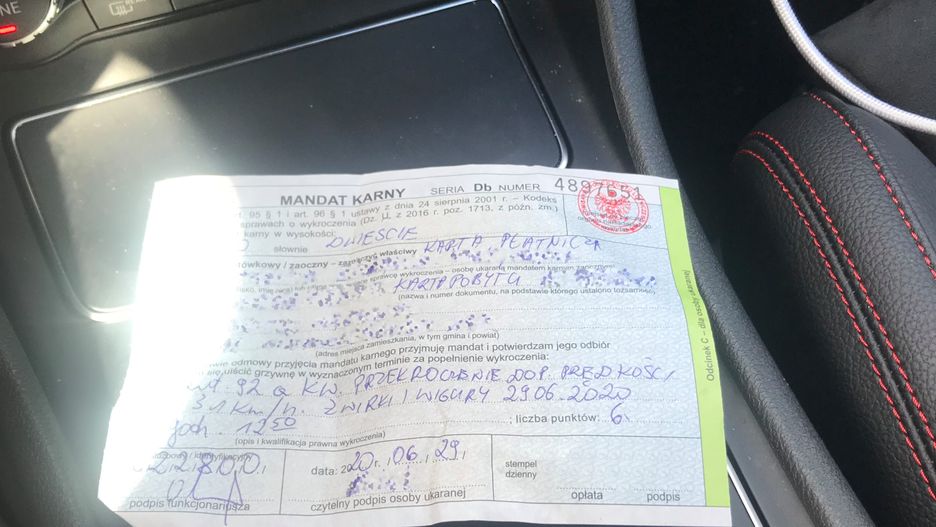 NE
REAR
MANDAT KARNY SERIA Db NUMER 4897651
95 § 1 i art. 96 § 1 ustawy z dnia 24 sierpnia 2001 r. – Kodeks
sprawach o wykroczenia (Dz. U. z 2016 r. poz. 1713, z późn. zm.)
karny w wysokości:
słownie DWIEŚCIE
/ zaoczny – zaznaczyć właściwy KARTA PŁATNICZA
sprawcę wykroczenia – osobę ukaraną mandatem karnym
KARTA POBYTU
(nazwa i numer dokumentu, na podstawie którego ustalono tożsamość)
(adres miejsca zamieszkania, w tym gmina i powiat)
odmowy przyjęcia mandatu karnego przyjmuję mandat i potwierdzam jego odbiór
się uiścić grzywnę w wyznaczonym terminie za popełnienie wykroczenia:
92 a KW. PRZEKROCZENIE DOP. PRĘDKOŚCI
31 km/h. ŻWIRKI I WIGURY 29.06.2020
godz. 12 50 ; liczba punktów: 6
(opis i kwalifikacja prawna wykroczenia)
podpis funkcjonariusza
data: 2020 r. 06. 29
czytelny podpis osoby ukaranej
stempel
dzienny
opłata podpis
Odcinek C – dla osoby ukaranej